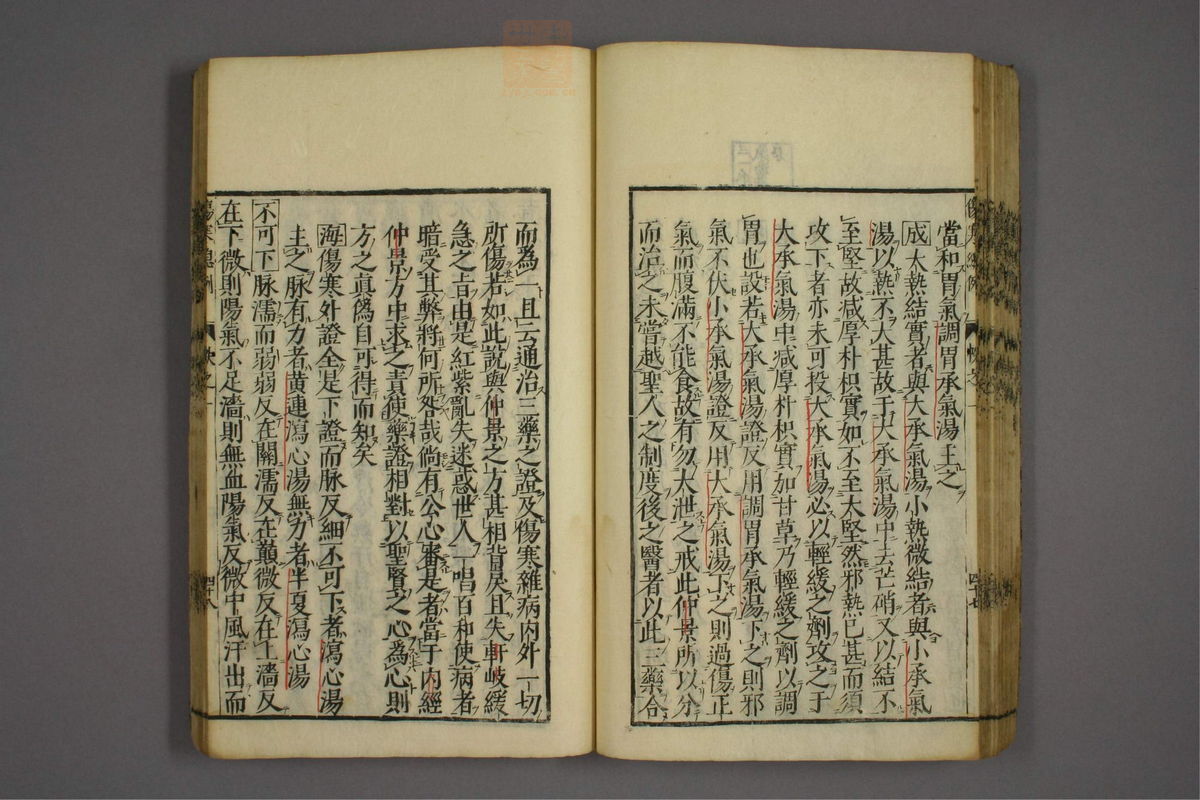 當和胃氣調胃承氣湯主之
成大熱結實者與大承氣湯小熱微結者與小承氣
湯以熱不大甚故于大承氣湯中去芒硝又以結不
至堅故减厚朴枳實如不至太堅然邪熱已甚而須
攻下者亦未可投大承氣湯必以輕緩之劑攻之于
大承氣湯中减厚朴枳實加甘草乃輕緩之劑以調
胃也設若大承氣湯證反用調胃承氣湯下之則邪
氣不伏小承氣湯證反用大承氣湯下之則過傷正
氣而腹滿不能食故有勿大泄之戒此仲景所以分
而治之未嘗越聖人之制度後之醫者以此三藥合
四十七
而為一且云通治三藥之證及傷寒雜病内外一切
所傷若如此說與仲景之方甚相背戾且失軒岐緩
急之旨由是紅紫亂失迷惑世人一唱百和使病者
暗受其弊將何所咎哉倘有公心審是者當于内經
仲景方中求之責使藥證相對以聖賢之心為心則
方之眞僞自可得而知矣
海傷寒外證全是下證而脉反細不可下者瀉心湯
主之脉有力者黄連瀉心湯無力者半夏瀉心湯
不可下脉濡而弱弱反在關濡反在巔微反在上濇反
在下微則陽氣不足濇則無血陽氣反微中風汗出而
四十八